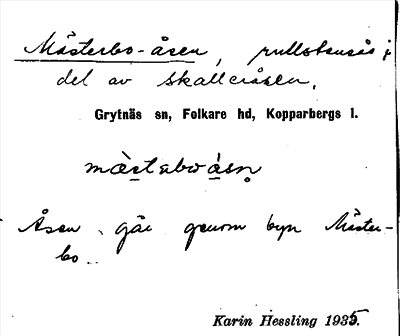 Mästerbo-åsen, rullstensås;
del av Skalleråsen.
Grytnäs sn, Folkare hd, Kopparbergs l.
mæ̀stəboásn̥
Åsen går genom byn Mäster-
bo.
Karin Hessling 1935.